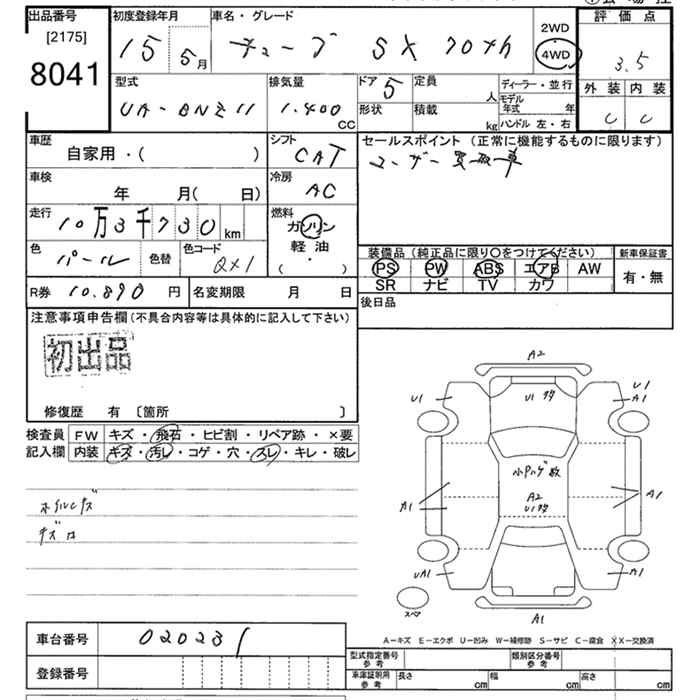 出品番号
[2175]
8041
初度登録年月
15 5月
車名・グレード
キューブ SX 70th
2WD
4WD
評価点
3.5
外装 内装
C C
型式
UA-BNZ11
排気量
1.400
CC
ドア 5
定員
人
形状
積載
kg
ディーラー・並行
モデル年式 年
ハンドル 左・右
車歴
自家用・( )
シフト
CAT
セールスポイント(正常に機能するものに限ります)
ユーザー買取車
車検
年 月( 日)
冷房
AC
走行
10万3千730km
燃料
ガソリン
軽油
・
( )
色
パール
色替
色コード
QX1
装備品(純正品に限り〇をつけてください)
PS PW ABS エアB AW
SR ナビ TV カワ
新車保証書
有・無
R券 10.890 円
名変期限 月 日
後日品
注意事項申告欄(不具合内容等は具体的に記入して下さい)
初出品
修復歴 有 〔箇所 〕
検査員記入欄
FW キズ・飛石・ヒビ割・リペア跡・×要
内装 キズ・汚レ・コゲ・穴・スレ・キレ・破レ
ホイルキズ
A2
U1
U1
A1
小Pハゲ数
A2
A1
A1
UA1
A1
A1
スペア
A-キズ E-エクボ U-凹み W-補修跡 S-サビ C-腐食 XX-交換済
車台番号
020231
登録番号
型式指定番号
参考
類別区分番号
参考
車庫証明用
参考
長さ cm
幅 cm
高さ cm